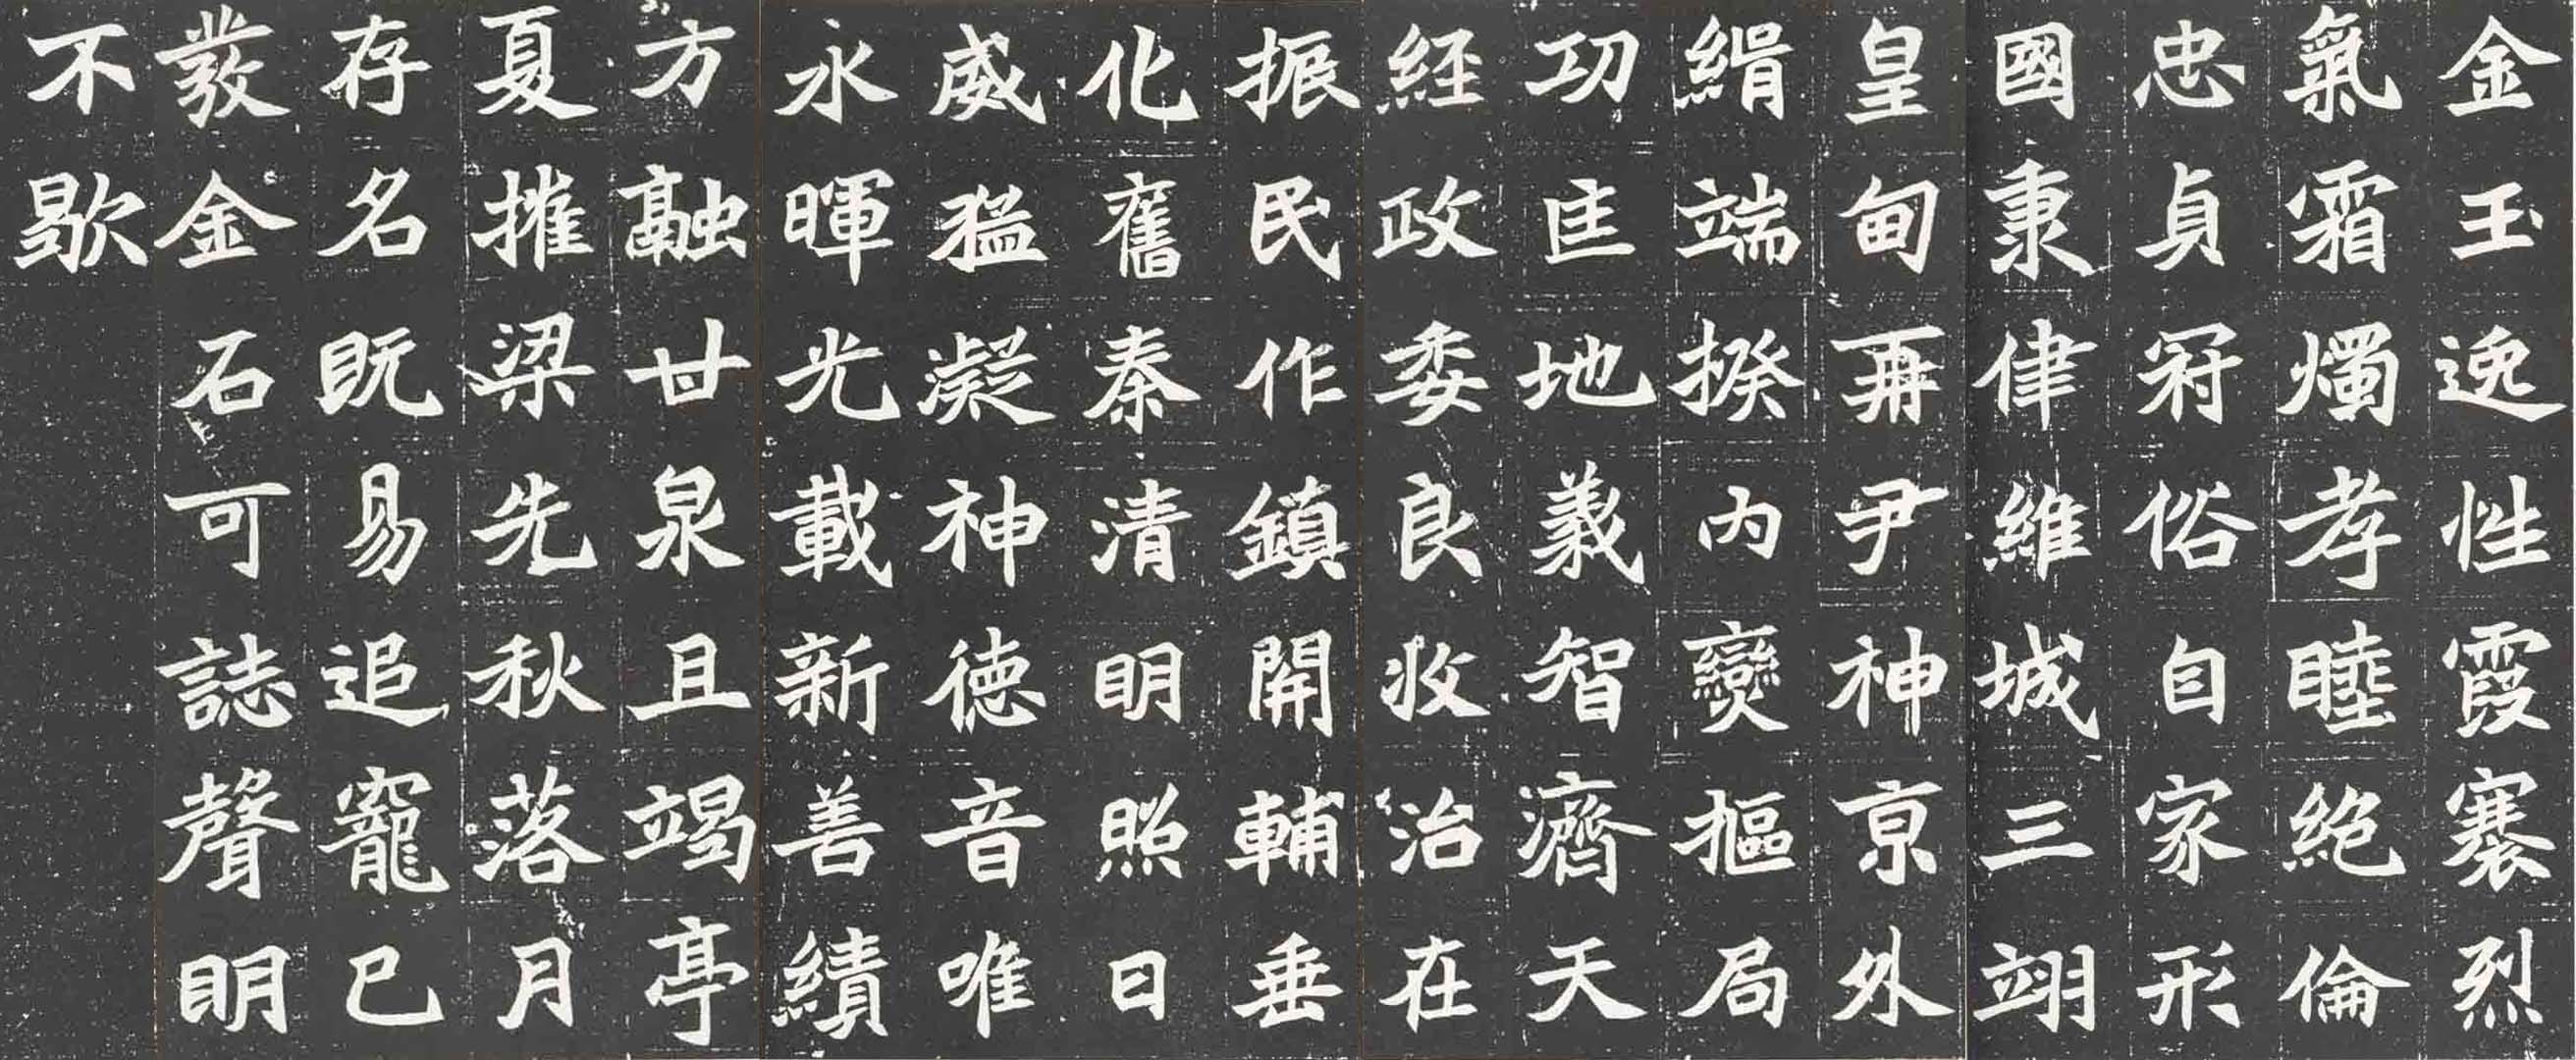 金玉逸性霞褰烈
氣霜燭孝睦絶倫
忠貞冠俗自家形
國秉律維城三翊
皇甸再尹神京外
緝端揆內爕摳局
功匡地義智濟天
経政委良收治在
振民作鎮開輔垂
化舊秦清明照日
威猛凝神徳音唯
永暉光載新善績
方融甘泉且竭亭
夏摧梁先秋落月
存名既易追寵已
發金石可誌聲明
不歇